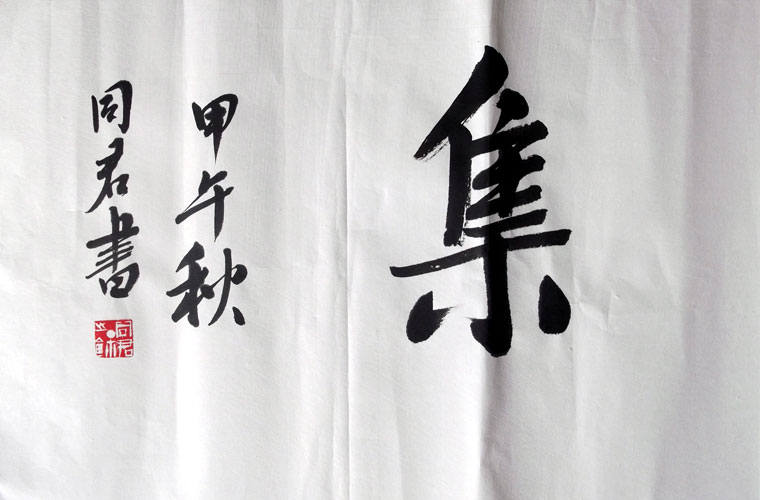 集
甲午秋
同君书